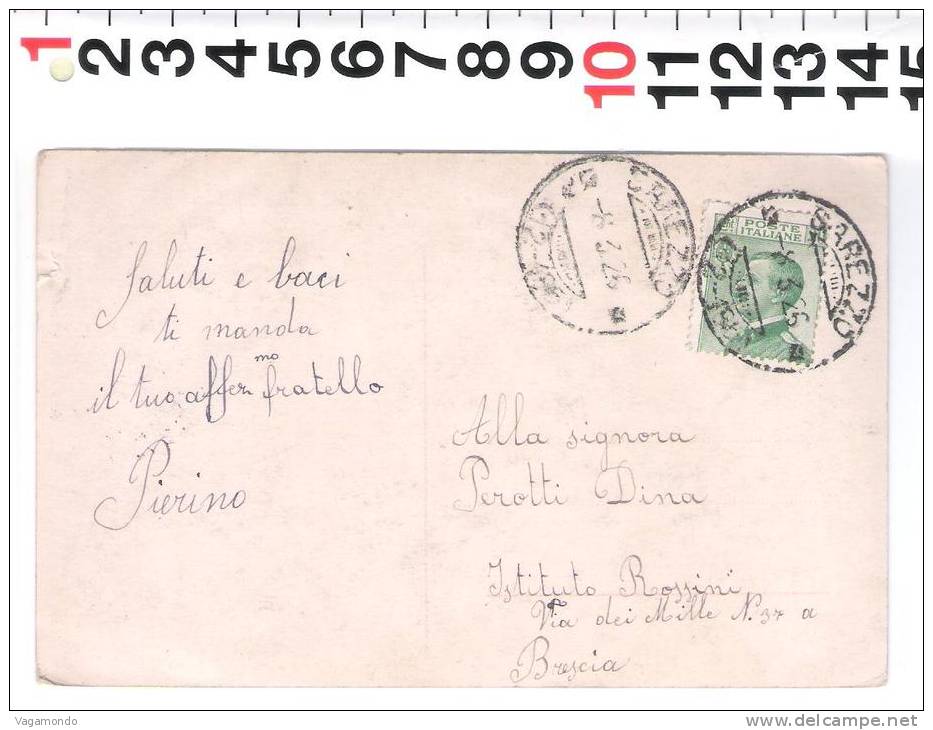 1 2 3 4 5 6 7 8 9 10 11 12 13 14 15
SAREZZO
POSTE
ITALIANE
SAREZZO
Saluti e baci
ti manda
il tuo affez.mo fratello
Pierino
Alla signora
Perotti Dina
Istituto Rossini
Via dei Mille N. 37 a
Brescia
Vagamondo
www.delcampe.net